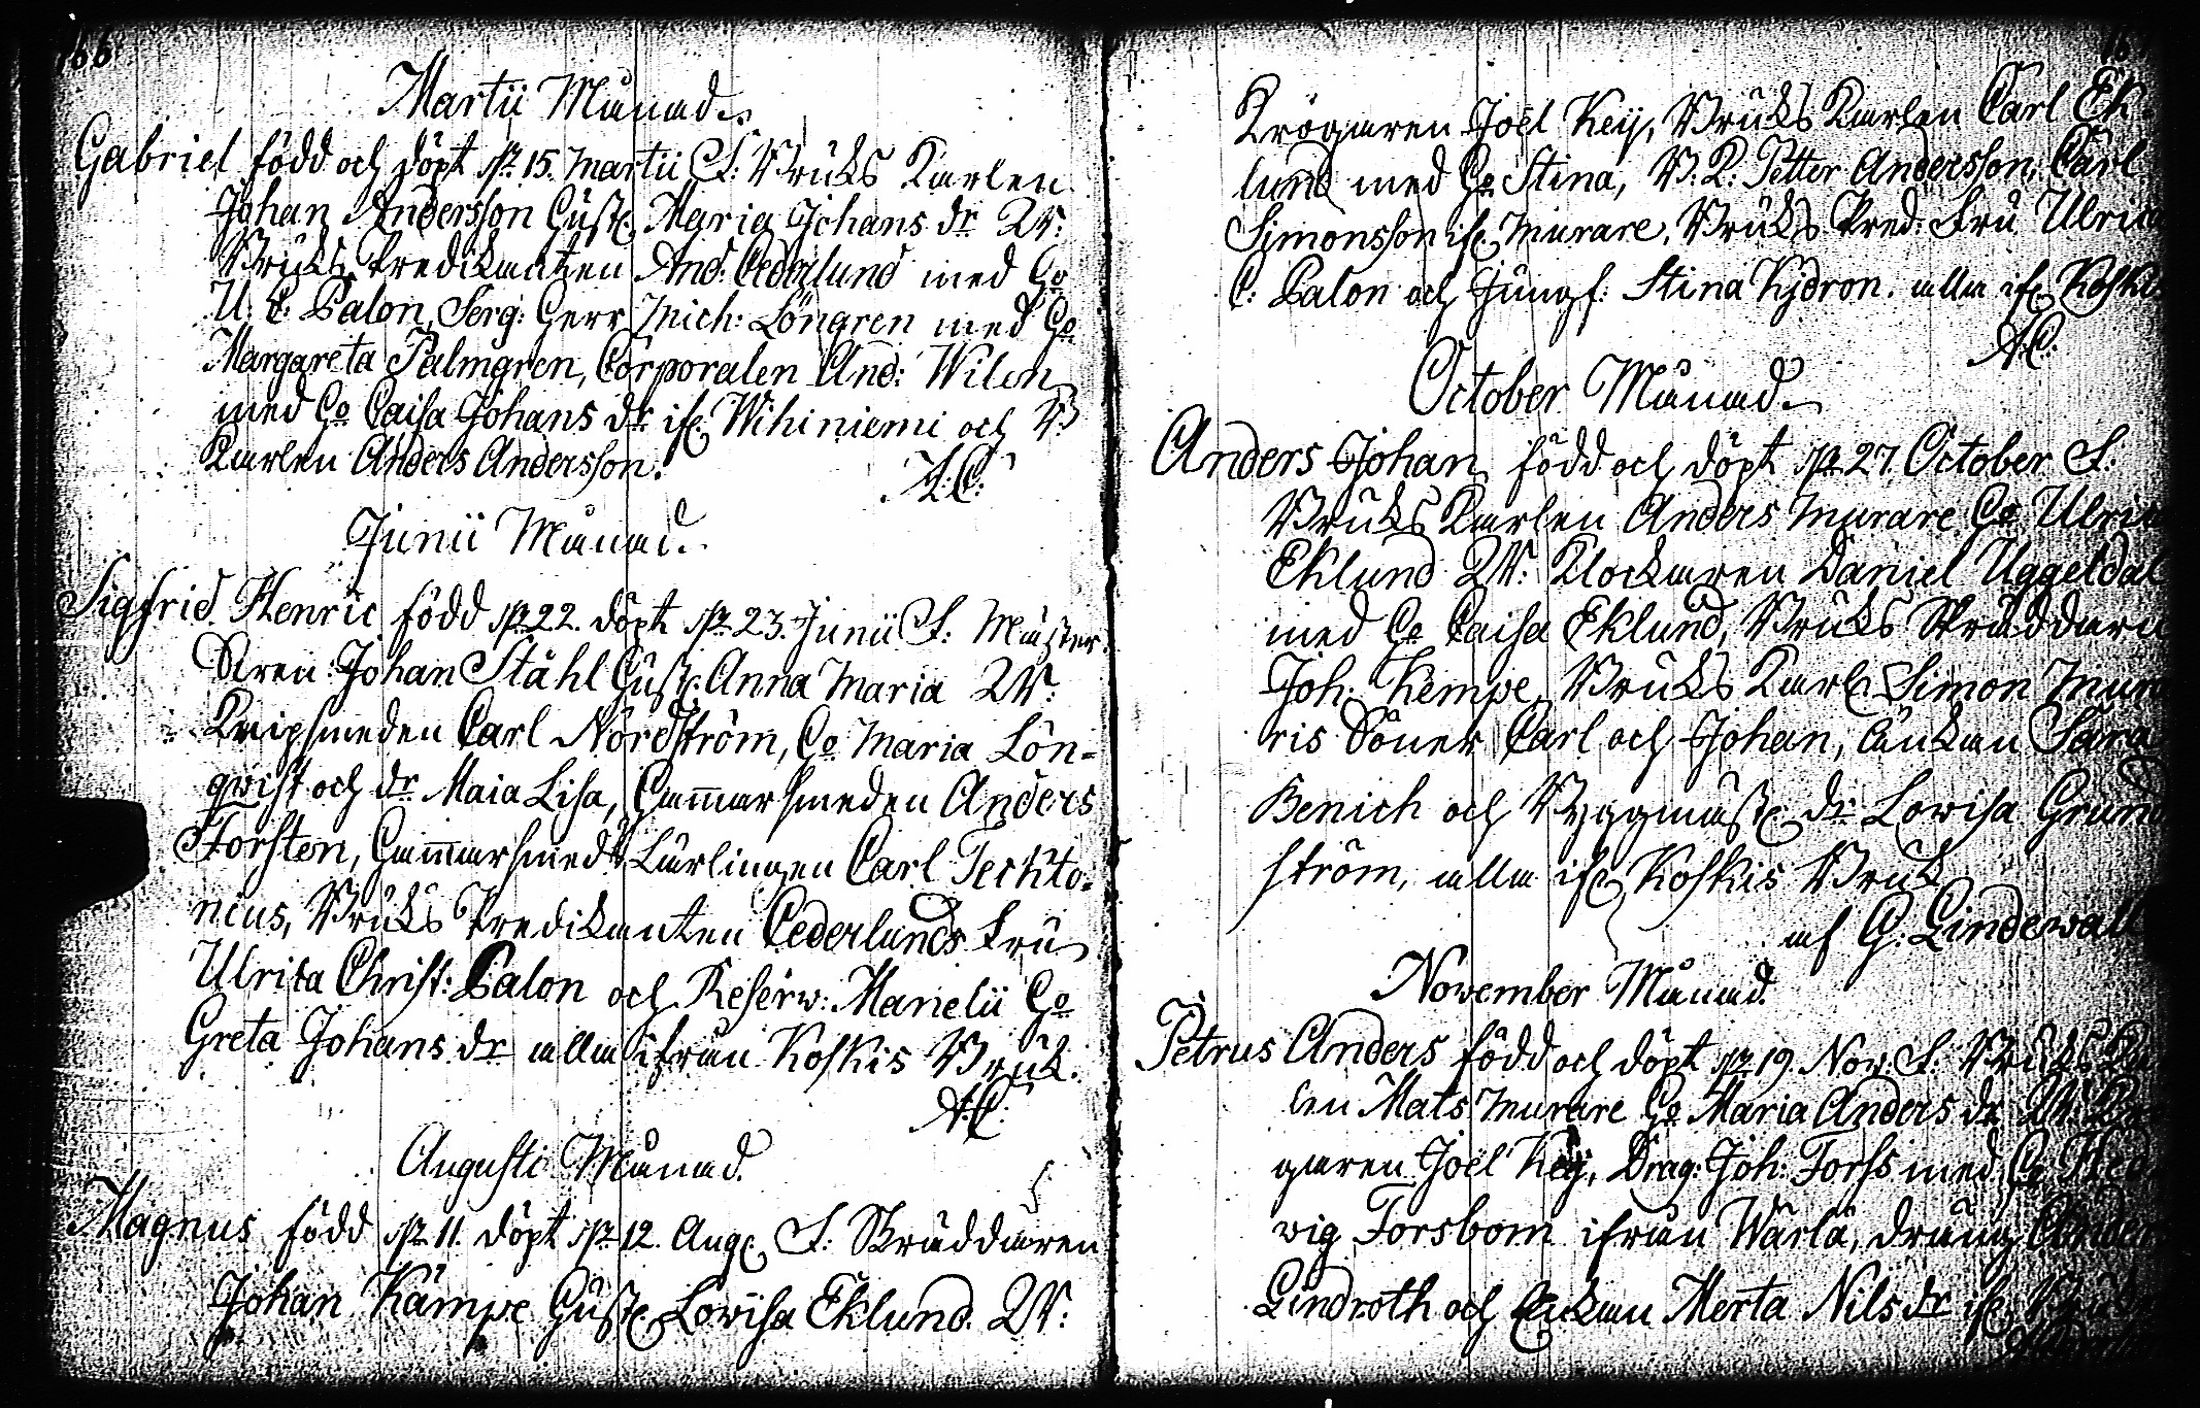 166
Martii Månad.
Gabriel född och döpt d. 15. Martii F: Bruks Karlen
Johan Andersson Hust. Maria Johans dr W:
Bruks Predikanten And: Cederlund med Ho
U: C: Palon, Serg: Herr Mich: Löngren med Ho
Margareta Palmgren, Corporalen And: Wilen
med Ho Caisa Johans dr if. Wihiniemi och B
Karlen Anders Andersson.
A:C:
Junii Månad.
Sigfrid Henric född d. 22. döpt d. 23. Junii F: Mäster
Johan Ståhl Hust. Anna Maria W:
Knipsmeden Carl Nordström, Ho Maria Lön-
qwist och dr Maia Lisa, Hammarsmeden Anders
Forsten, Hammarsmeds Lärlingen Carl Techto-
nius, Bruks Predikanten Cederlunds Fru
Ulrica Christ: Palon och Reserw: Marielii Ho
Greta Johans dr alla ifrån Koskis Bruk.
A:C:
Augusti Månad.
Magnus född d. 11. döpt d. 12. Aug. F: Skräddaren
Johan Kämpe Hust. Lovisa Eklund. W:
Krögaren Joel Keij, Bruks Karlen Carl Ek-
lund med Ho Stina, B. K: Petter Andersson, Carl
Simonsson if. Murare, Bruks Pred: Fru Ulrica
C: Palon och Jungf: Stina Kydron. alla if. Koskis
A:C:
October Månad.
Anders Johan född och döpt d. 27. October F:
Bruks Karlen Anders Murare Ho Ulrica
Eklund W: Klockaren Daniel Uggeldal
med Ho Caisa Eklund, Bruks Skräddaren
Joh: Kempe, Bruks Karl. Simon Mura
ris Söner Carl och Johan, Änkan Sara
Benich och Byggmäst. dr Lovisa Grund
ström, alla if. Koskis Bruk
af G: Lindewall
November Månad.
Petrus Anders född och döpt d. 19. Nov: F: Bruks Kar
len Mats Murare Ho Maria Anders dr W: Krö
garen Joel Keij, Drag: Joh: Forss med Ho Hed
wig Forsbom ifrån Wärlä, dräng
Lindroth och Änkan Merta Nils dr if. Bruk